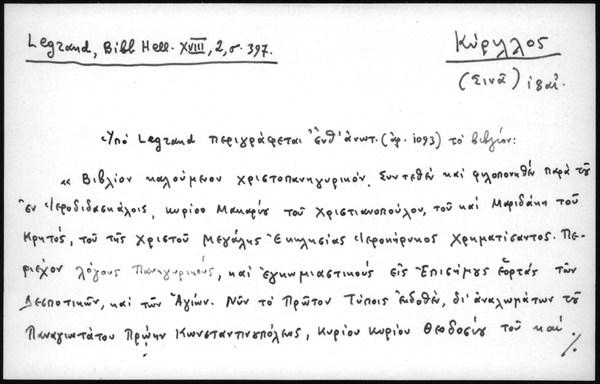 Legrand, Bibl. Hell. XVIII, 2, σ. 397.
Κύριλλος
(Σινᾶ) ιδαί.
Ὑπὸ Legrand περιγράφεται ἔνθ' ἀνωτ. (ἀρ. 1093) τὸ βιβλίον:
« Βιβλίον καλούμενον χριστοπανηγυρικόν. Συντεθὲν καὶ φιλοπονηθὲν παρὰ τοῦ
ἐν Ἱεροδιδασκάλοις, κυρίου Μακαρίου τοῦ Χριστιανοπούλου, τοῦ καὶ Μαριδάκη τοῦ
Κρητός, τοῦ τῆς Χριστοῦ Μεγάλης Ἐκκλησίας Ἱεροκήρυκος Χρηματίσαντος. Πε-
ριέχον λόγους Πανηγυρικούς, καὶ ἐγκωμιαστικοὺς εἰς Ἐπισήμους ἑορτὰς τῶν
Δεσποτικῶν, καὶ τῶν Ἁγίων. Νῦν τὸ Πρῶτον Τύποις ἐκδοθέν, δι' ἀναλωμάτων τοῦ
Παναγιωτάτου Πρώην Κωνσταντινουπόλεως, Κυρίου Κυρίου Θεοδοσίου τοῦ καὶ
./.